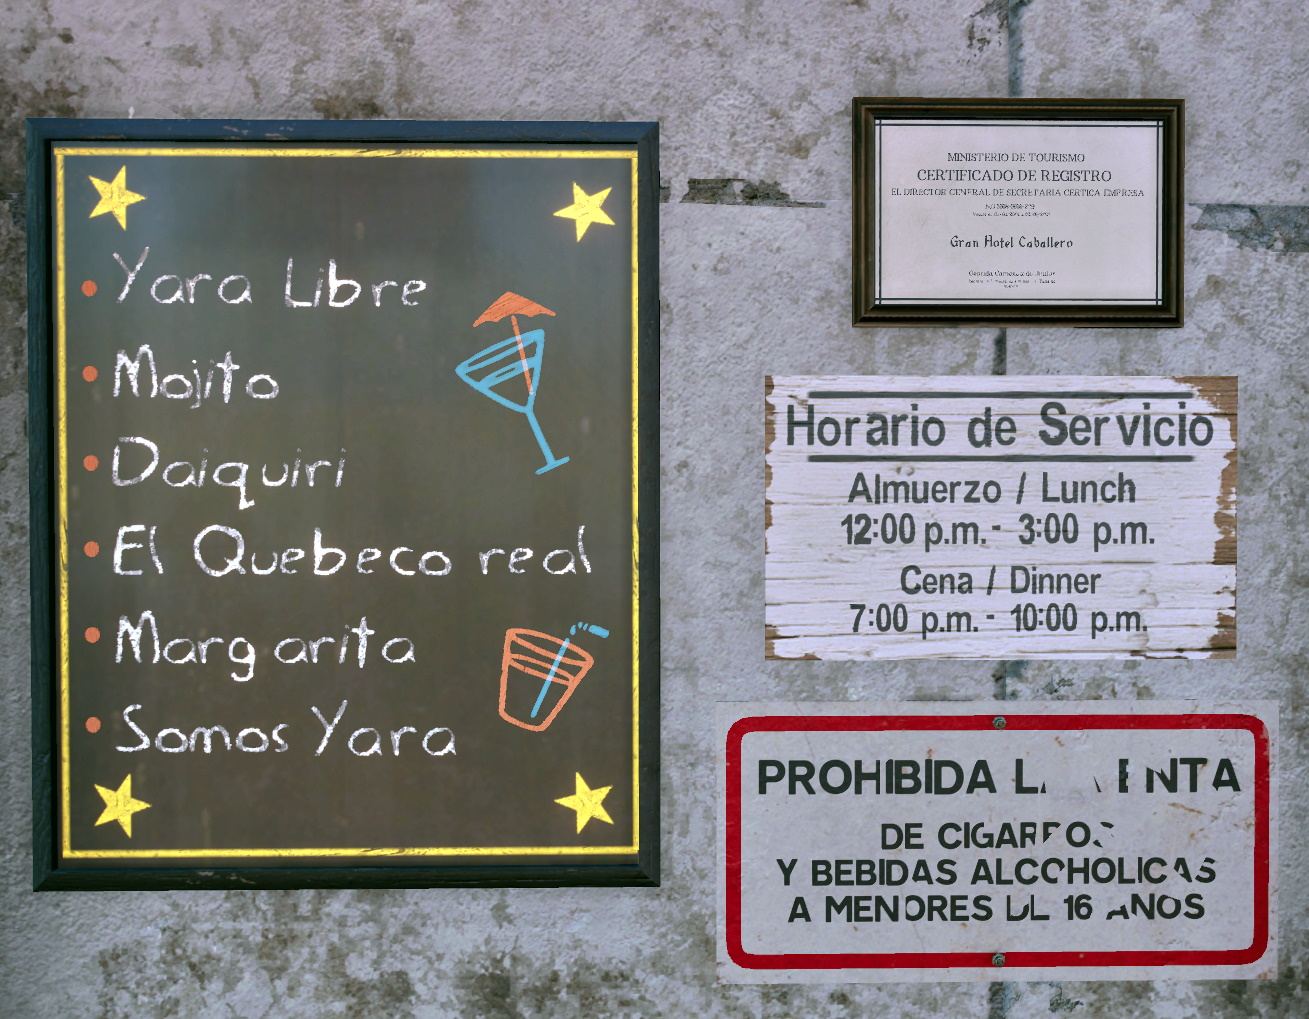 Yara Libre
Mojito
Daiquiri
El Quebeco real
Margarita
Somos Yara
MINISTERIO DE TOURISMO
CERTIFICADO DE REGISTRO
EL DIRECTOR GENERAL DE SECRETARIA CERTICA EMPRESA
Gran Hotel Caballero
Horario de Servicio
Almuerzo / Lunch
12:00 p.m. - 3:00 p.m.
Cena / Dinner
7:00 p.m. - 10:00 p.m.
PROHIBIDA LA VENTA
DE CIGARROS
Y BEBIDAS ALCOHOLICAS
A MENORES DE 16 ANOS